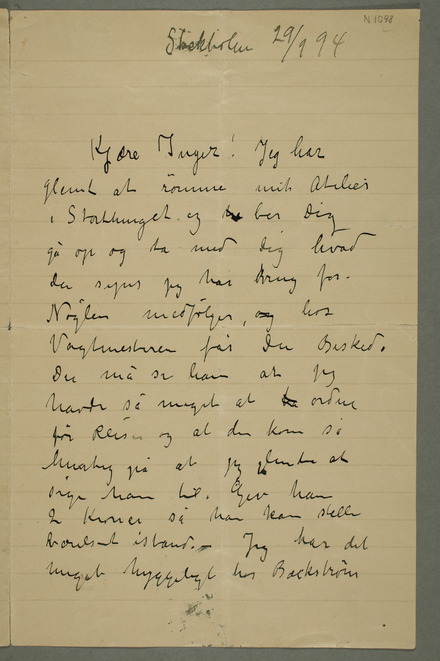 N 1098
Stockholm 29/9 94
Kjære Inger! Jeg har
glemt at römme mit Atelier
i Storthinget og ber Dig
gå op og ta med Dig hvad
du syns jeg har brug for.
Nöglen medfölger, og hos
Vagtmesteren får Du Besked.
Du må si ham at jeg
havde så meget at ordne
før Reisen og at den kom så
hurtig på at jeg glemte at
sige ham til. Giv ham
2 Kroner så han kan stelle
Værelset istand. – Jeg har det
meget hyggeligt hos Backström